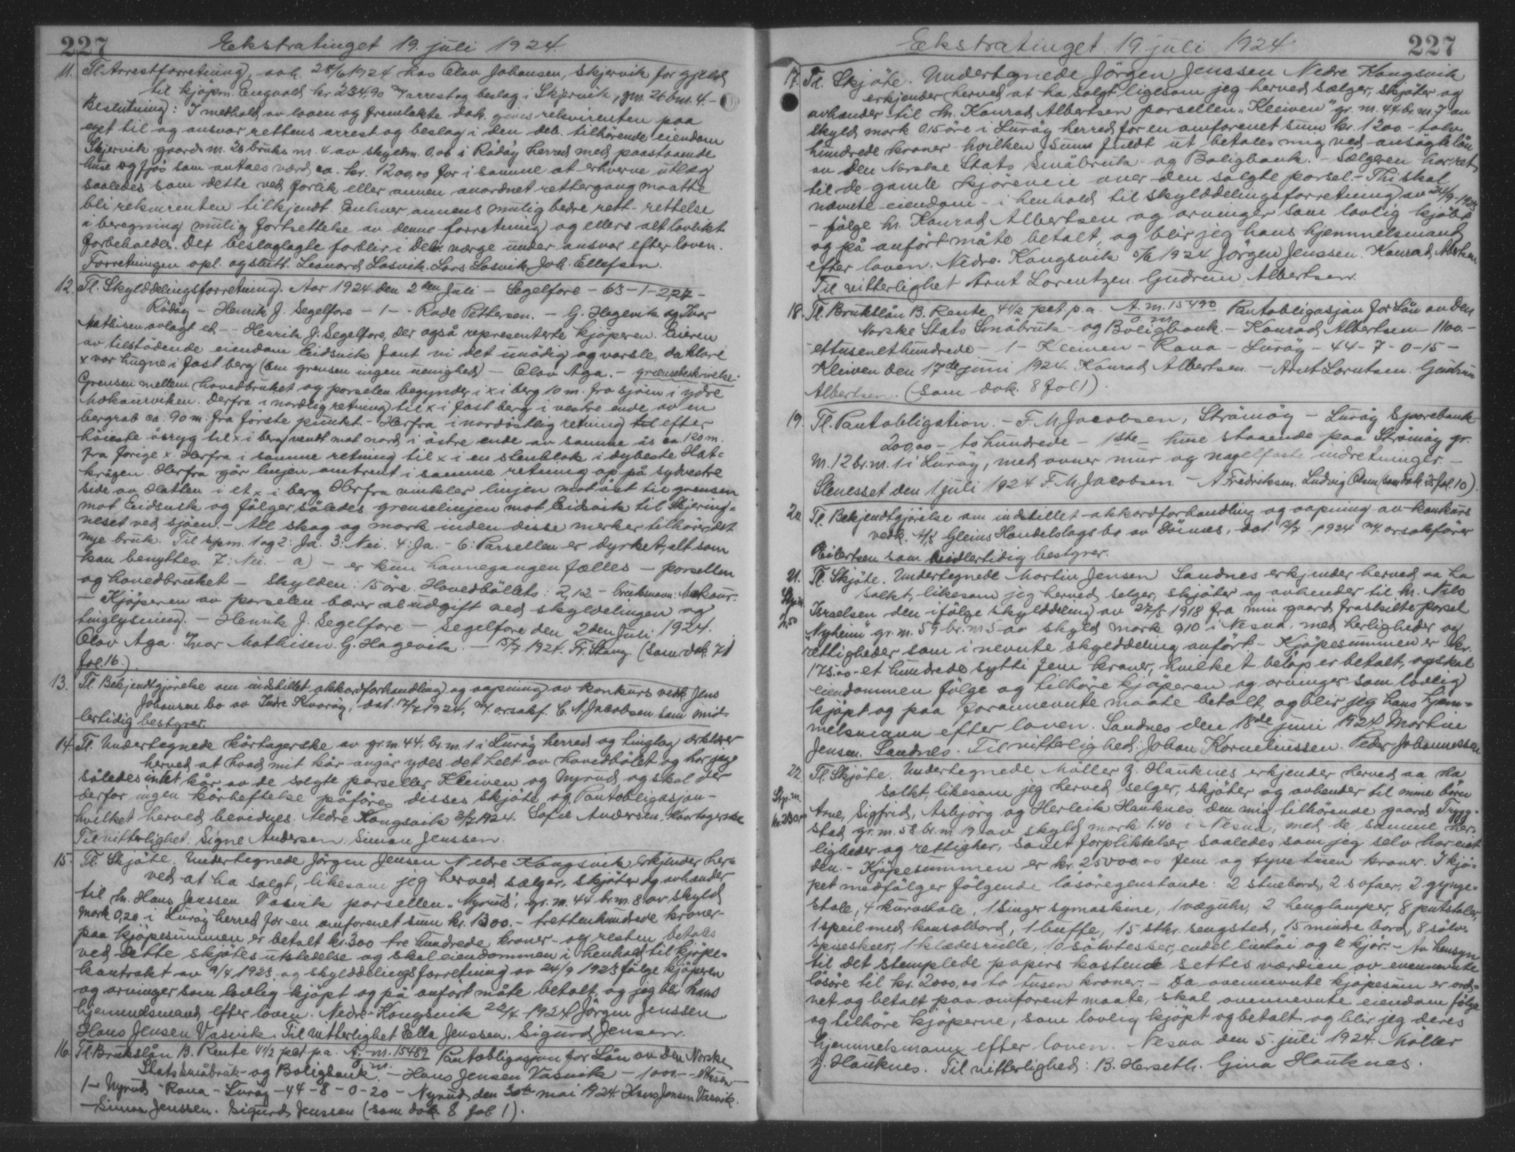 227 Ekstratinget 19 juli 1924
11. Tl. Arrestforretning, avh. 24/6 1924 hos Olav Johansen, Skjervik for gjeld
til kjøpm. Engvold kr. 234.90 arrest og beslag i Skjervik, gm. 26 bm. 4.-
Beslutning: I medhold av loven og fremlakte dok. gives rekvirenten paa
eget til og ansvar rettens arrest og beslag i den deb. tilhørende eiendom
Skjervik gaards nr. 26 bruks nr. 4 av skyldm. 0,06 i Rödöy herred med paastaaende
huse og fjös som antaes værd ca. kr. 1200,00 for i samme at erhverve utlæg
saaledes som dette ved forlik eller annen anordnet rettergang maatte
bli rekvirenten tilkjendt. Enhver annens mulig bedre rett - rettelse
i beregning mulig fortsettelse av denne forretning og ellers alt lovlikt
forbeholdt. Det beslaglagte forblir i deb. værge under ansvar efter loven.
Forretningen opl. og slutt. Leonard Losvik. Lars Losvik. Joh. Ellefsen.
12. Tl. Skylddelingsforretning. Aar 1924 den 2den Juli - Segelfore - 63-1-2,27-
Rödöy - Henrik J. Segelfore - 1 - Rode Pettersen. - G. Hagevik og Ivar
Mathisen avlagt ed - Henrik J. Segelfore, der også representerte kjøperen. Eieren
av tilstødende eiendom Eidsvik fant vi det unødig og varsle, da klare
x var hugne i fast berg (om grensen ingen uenighed) - Olav Aga. - grensebeskrivelse:
Grensen mellem hovedbruket og porselen begynder i x i berg 10 m. fra sjøen i ydre
Makourviken. Derfra i nordlig retning til x i fast berg i vestre ende av en
bergrab ca. 90 m. fra første punkt - Herfra i nordøstlig retning til efter
høieste åsryg til x i berg vendt mot nord i østre ende av samme ås ca 120 m.
fra forige x Herfra i samme retning til x i en stenblok i dybeste Hat-
krågen. Herfra går linjen omtrent i samme retning op på sydvestre
side av Hatten i et x i berg Herfra vinkler linjen mot øst til grensen
mot Eidsvik og følger således grenselinjen mot Eidsvik til Skjering-
neset ved sjøen. - All skog og mark inden disse merker tilhører det
nye bruk. Til spm. 1 og 2: Ja. 3: Nei. 4: Ja. - 6: Parsellen er dyrket, alt som
kan benyttes. 7: Nei. - a) - er kun havnegangen fælles - porsellen
og hovedbruket - Skylden: 15 øre. Hovedbøllets: 2,12 - bruksnavn: Makour.
- Kjøperen av porselen bærer al udgift ved skyldelingen og
tinglysning. - Henrik J. Segelfore - Segelfore den 2den Juli 1924.
Olav Aga. Ivar Mathisen G. Hagevik. - 15/7 1924. Fr. Stang (som dok. 71
fol. 16.)
13. Tl. Bekjendtgjörelse om indstillet akkordforhandling og aapning av konkurs vedk. Jens
Johansens bo av Indre Kvarøy, dat. 17/7 1924, o.r.saksf. C. A. Jacobsen som mid-
lertidig bestyrer.
14. Tl. Undertegnede kårtagerske av gr.nr. 44. br.nr. 1 i Lurøy herred og tinglag erklærer
herved at hvad mit kår angår ydes det helt av hovedbölet og har jeg
således intet kår av de solgte parseller Kleiven og Nyrud, og skal der
derfor ingen kårheftelse påføres disses skjöte og Pantobligasjon -
hvilket herved bevidnes. Nedre Kongsvik 2/7 1924. Sofie Andersen. Kårtagerske
Til vitterlighet. Signe Andersen Simon Jenssen
15. Tl. Skjöte. Undertegnede Jörgen Jensen Nedre Kongsvik erkjender her-
ved at ha solgt, likesom jeg herved sælger, skjöter og avhender
til hr. Hans Jenssen Vasvik porsellen "Nyrud", gr. m. 44 br. nr. 8 av skyld
mark 0,20 i Lurøy herred for en omforenet sum kr. 1300.- trettenhundrede kroner -
paa kjøpesummen er betalt kr. 300 tre hundrede kroner - og resten betales
ved dette skjötes utstedelse og skal eiendommen i henhold til kjøpe-
kontrakt av 9/4 1923 og skylddelingsforretning av 24/9 1923 følge kjøperen
og arvinger som lovlig kjøpt og på anført måte betalt og jeg blir hans
hjemmelsmand efter loven. Nedre Kongsvik 20/7 1924 Jörgen Jenssen
Hans Jensen Vasvik. Til vitterlighet Ella Jenssen. Sigurd Jensen.
16. Tl. Brukslån B. Rente 4½ pct p.a. A. nr. 15489 Pantobligasjon for Lån av den Norske
Stats Småbruk- og Boligbank. - Hans Jensen Vasvik - 1000 - ettusen -
1 - Nyrud - Rana - Lurøy - 44-8-0-20 - Nyrud den 30te mai 1924 Hans Jensen Vasvik.
Simon Jenssen. Sigurd Jenssen (som dok. 8 fol 1).
Ekstratinget 19 juli 1924 227
17. Tl. Skjöte. Undertegnede Jörgen Jenssen Nedre Kongsvik
erkjender herved at ha solgt ligesom jeg herved sælger, skjöter og
avhender til hr. Konrad Albertsen porsellen "Kleiven" gr. nr. 44 br. nr. 7 av
skyld mark 0,15 öre i Lurøy herred for en omforenet sum kr. 1200 - tolv
hundrede kroner hvilken sum fuldt ut betales mig ved ansøgte lån
av Den Norske Stats Småbruk- og Boligbank. - Sælgeren har ret
til de gamle kjöreveie over den solgte porsel. - Thi skal
nævnte eiendom - i henhold til skylddelingsforretning av 24/9 1923
- følge hr. Konrad Albertsen og arvinger som lovlig kjøbt
og på anført måte betalt, og blir jeg hans hjemmelsmand
efter loven. Nedre Kongsvik 1924 Jörgen Jenssen. Konrad Albertsen
Til vitterlighet Arnt Lorentzen Gudrun Albertsen
18. Tl. Brukslån B. Rente 4½ pct p.a. A. nr. 15490 Pantobligasjon for Lån av Den
Norske Stats Småbruk- og Boligbank - Konrad Albertsen - 1100.-
- ettusenethundrede - 1 - Kleiven - Rana - Lurøy - 44-7-0-15 -
Kleiven den 17de juni 1924. Konrad Albertsen. - Arnt Lorntsen. Gudrun
Albertsen. (som dok. 8 fol 1)
19. Tl. Pantobligation. - F. M. Jacobsen, Strömöy - Lurøy Sparebank
200,00 - to hundrede - 1ste - huse staaende paa Strömöy gr.
nr. 12 br. nr. 1 i Lurøy, med ovner mur og nagelfaste indretninger. -
Stenesset den 1 juli 1924 F. M Jacobsen - A Fredriksen. Ludvig Olsen (som dok 25 fol. 10).
20. Tl. Bekjendtgjörelse om indstillet akkordforhandling og aapning av konkurs
vedk. A/S Gleins Handelslags bo av Dönnes, dat 1924 o.r.saksfører
Eilertsen som midlertidig bestyrer.
21. Tl. Skjöte. Undertegnede Martin Jensen Sandnes erkjender herved aa ha
solgt, likesom jeg herved selger, skjöter og avhender til hr. Nils
Israelsen den ifölge skylddeling av 24/5 1918 fra min gaard fraskilte porsel
"Nyheim" gr. nr. 59 br. nr. 5 av skyld mark 0,10 i Nesna, med herligheder og
rettigheder som i nevnte skylddeling anført - Kjöpesummen er kr.
175.00 - et hundrede sytti fem kroner, hvilket beløp er betalt, og skal
eiendommen følge og tilhöre kjöperen og arvinger som lovlig
kjøpt og paa forannevnte maate betalt, og blir jeg hans hjem-
melsmann efter loven. Sandnes den 18de juni 1924 Martin
Jensen. Sandnes. Til vitterlighed: Johan Korneliussen. Peder Johannessen
22. Tl. Skjöte. Undertegnede Möller Z. Hauknes erkjender herved aa ha
solgt likesom jeg herved selger, skjöter og avhender til mine børn
Arne, Sigfrid, Asbjørg og Herleik Hauknes den mig tilhørende gaard Trygg-
stad gr. nr. 58 br. nr. 9 av skyld mark 1.40 i Nesna, med de samme her-
ligheder og rettigher, samt forpliktelser, saaledes som jeg selv har eiet
den. - Kjöpesummen er kr. 25000.00 fem og tyve tusen kroner. I kjö-
pet medfølger følgende lösöregenstande: 2 stuebord, 2 sofaer, 2 gynge-
stole, 4 kurvstole, 1 Singer symaskine, 1 væguhr, 2 henglamper, 8 putstoler
1 speil med konsolbord, 1 buffe, 15 stkr. sengsted, 15 mindre bord, 8 sölv-
spiseskeer, 1 klædesrulle, 10 sölvteskeer, endel lintøi og 2 kjør. - Av hensyn
til det stemplede papirs kostende settes værdien av ovennevnte
lösöre til kr. 2000,00 to tusen kroner. - Da ovennevnte kjöpesum er ord-
net og betalt paa omforent maate, skal ovennevnte eiendom følge
og tilhöre kjöperne, som lovlig kjøpt og betalt og blir jeg deres
hjemmelsmann efter loven. Nesna den 5. juli 1924. Möller
Z. Hauknes. Til vitterlighed: B. Herseth. Gina Hauknes.